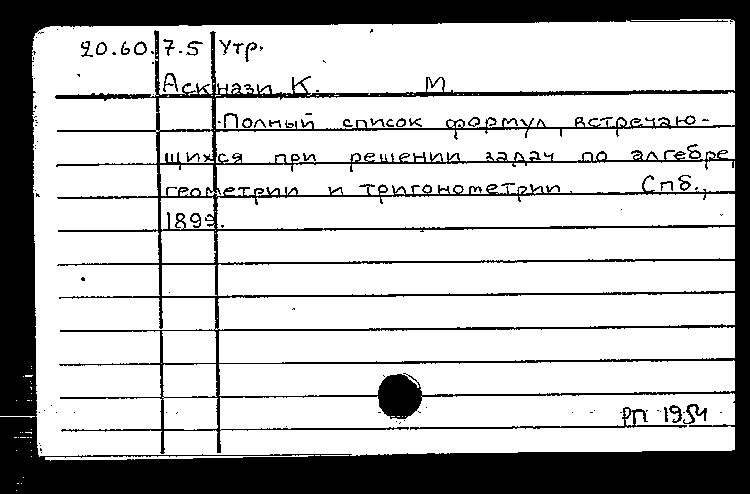 20.60.7.5 Утр.
Аскнази, К. М.
Полный список формул, встречаю-
щихся при решении задач по алгебре,
геометрии и тригонометрии. Спб.,
1899.
РП 1954